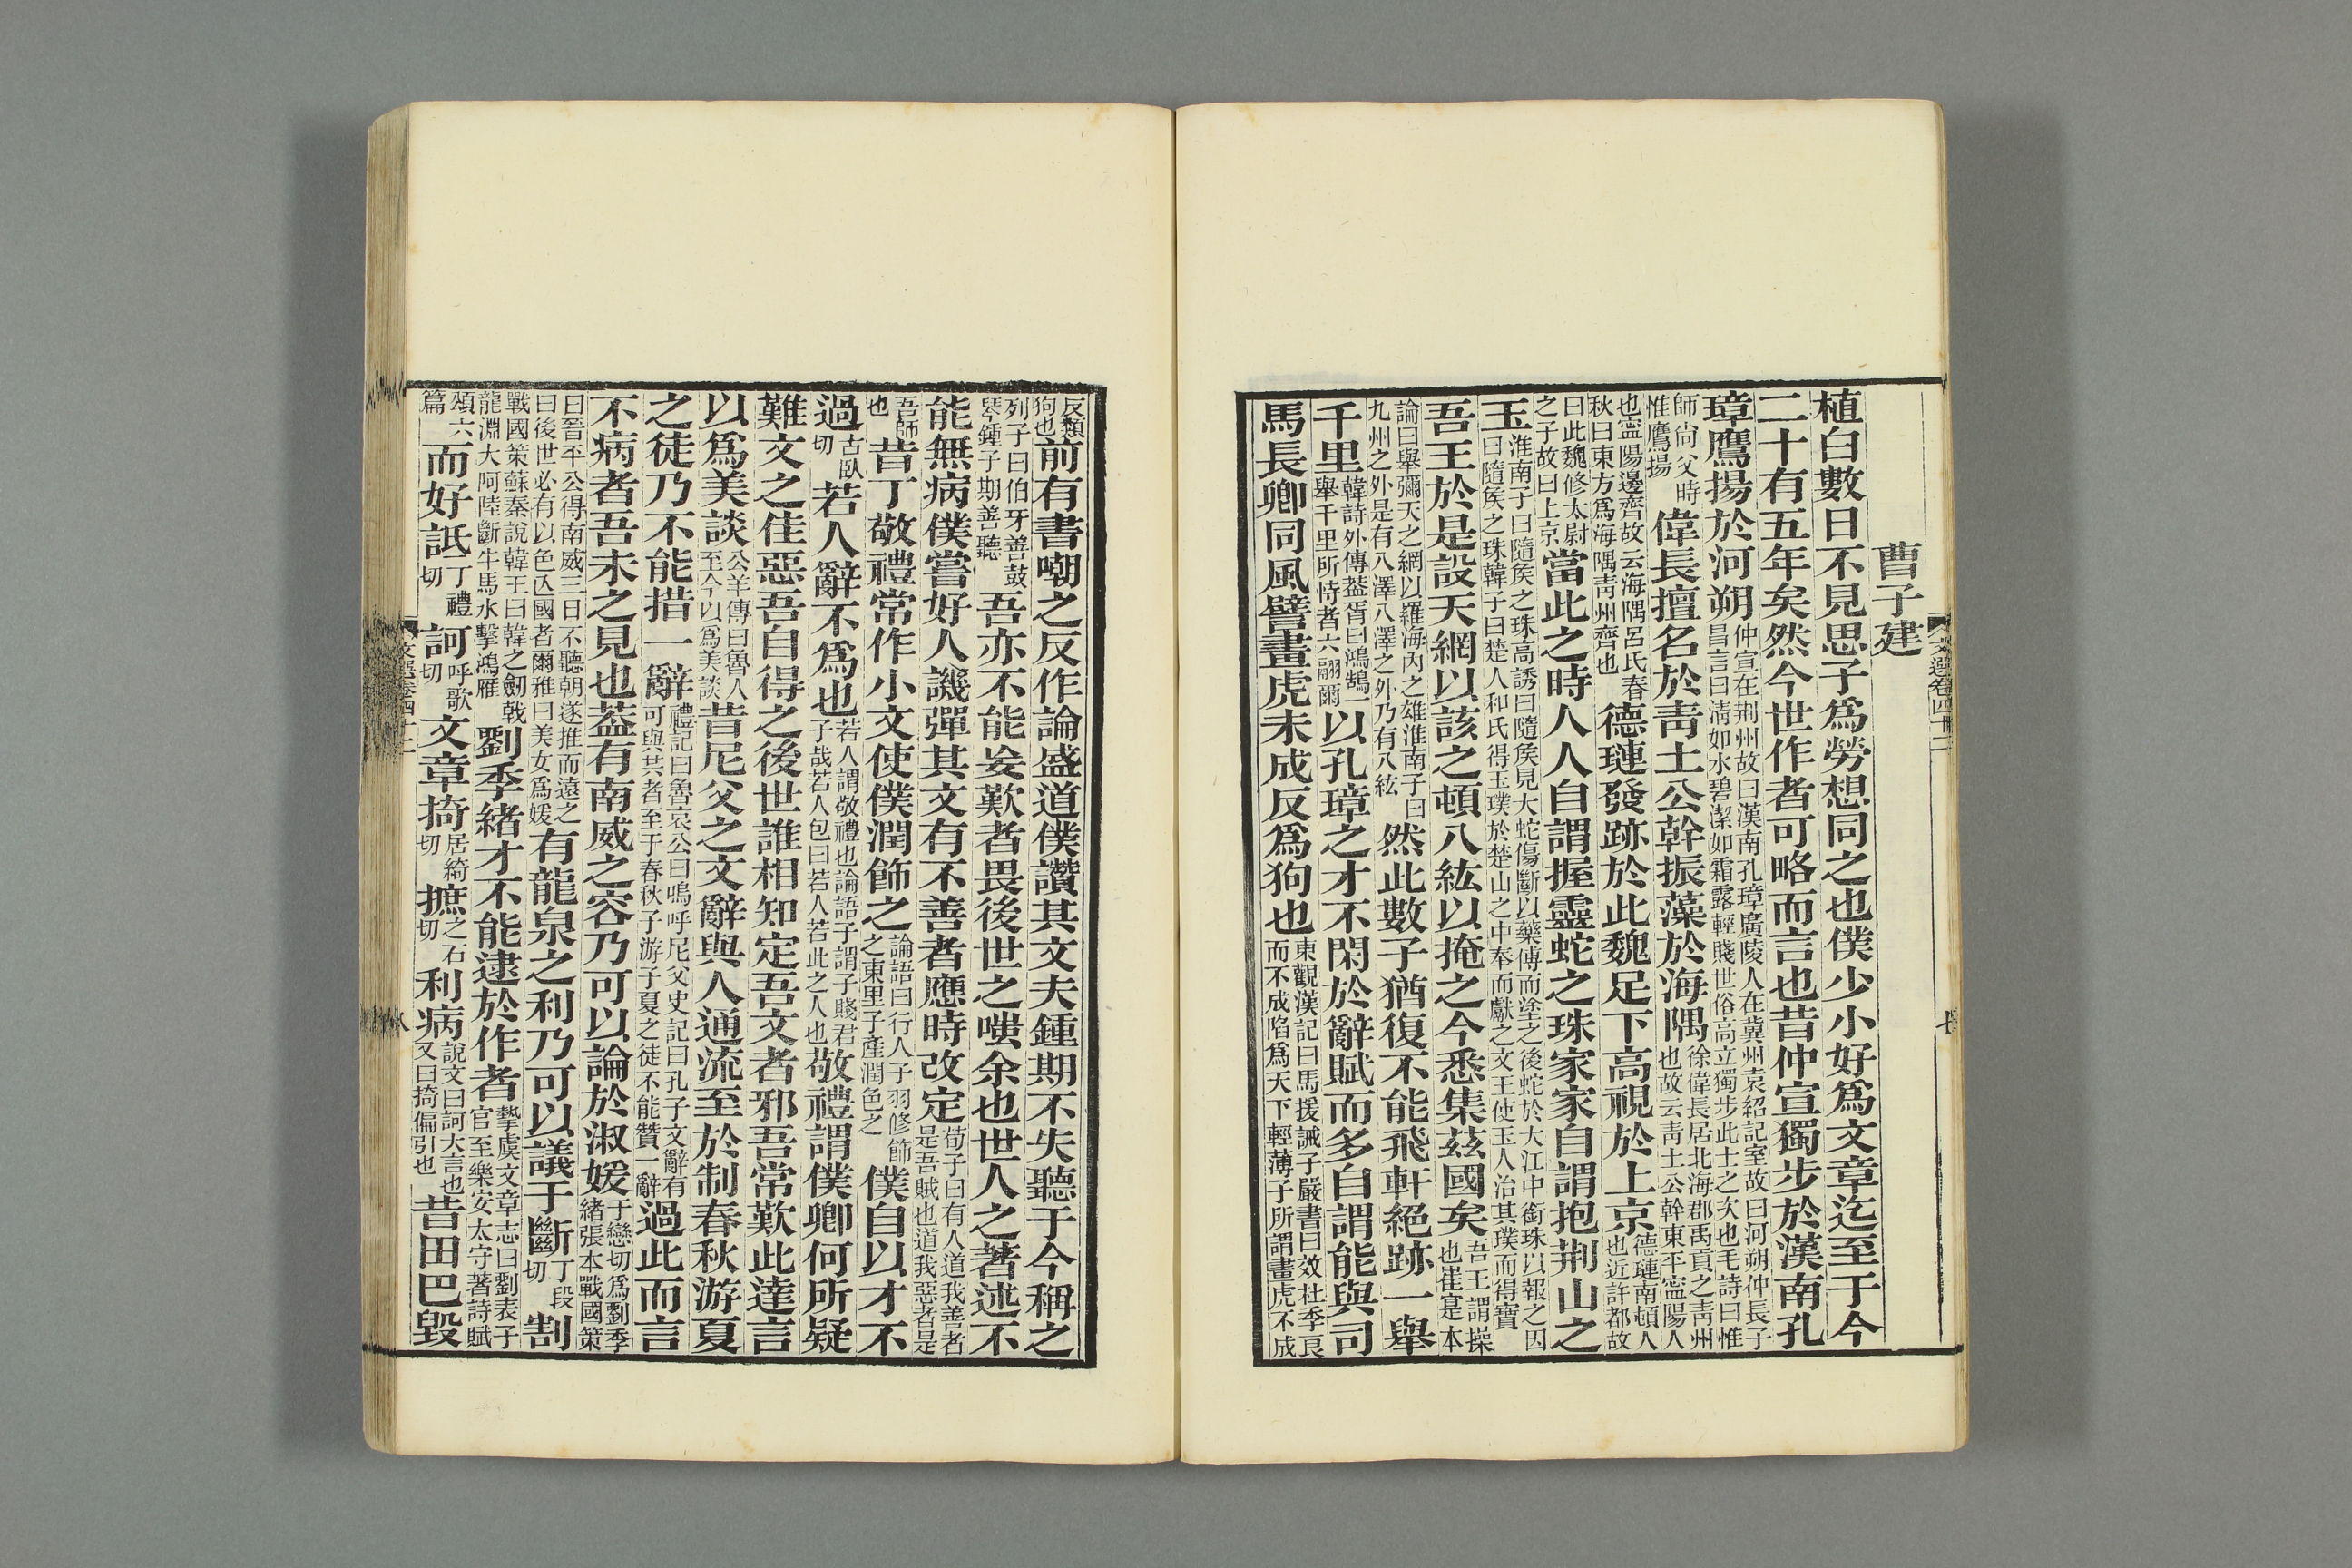 文選卷四十二
七
曹子建
植白數日不見思子爲勞想同之也僕少小好爲文章迄至于今
二十有五年矣然今世作者可略而言也昔仲宣獨步於漢南孔
璋鷹揚於河朔仲宣在荆州故曰漢南孔璋廣陵人在冀州袁紹記室故曰河朔仲長子昌言曰淸如水碧潔如霜露輕賤世俗高立獨步此士之次也毛詩曰惟
師尙父時惟鷹揚偉長擅名於靑土公幹振藻於海隅徐偉長居北海郡禹貢之靑州也故云靑土公幹東平寍陽人
也寍陽邊齊故云海隅呂氏春秋曰東方爲海隅靑州齊也德璉發跡於此魏足下高視於上京德璉南頓人也近許都故
曰此魏修太尉之子故曰上京當此之時人人自謂握靈蛇之珠家家自謂抱荆山之
玉淮南子曰隨矦之珠高誘曰隨矦見大蛇傷斷以藥傅而塗之後蛇於大江中銜珠以報之因曰隨矦之珠韓子曰楚人和氏得玉璞於楚山之中奉而獻之文王使玉人治其璞而得寶
吾王於是設天網以該之頓八紘以掩之今悉集茲國矣吾王謂操也崔寔本
論曰舉彌天之網以羅海內之雄淮南子曰九州之外是有八澤八澤之外乃有八紘然此數子猶復不能飛軒絕跡一舉
千里韓詩外傳葢胥曰鴻鵠一舉千里所恃者六翮爾以孔璋之才不閑於辭賦而多自謂能與司
馬長卿同風譬畫虎未成反爲狗也東觀漢記曰馬援誡子嚴書曰效杜季良而不成陷爲天下輕薄子所謂畫虎不成
反類狗也前有書嘲之反作論盛道僕讚其文夫鍾期不失聽于今稱之
列子曰伯牙善鼓琴鍾子期善聽吾亦不能妄歎者畏後世之嗤余也世人之著述不
能無病僕嘗好人譏彈其文有不善者應時改定荀子曰有人道我善者是吾賊也道我惡者是
吾師也昔丁敬禮常作小文使僕潤飾之論語曰行人子羽修飾之東里子產潤色之僕自以才不
過古臥切若人辭不爲也若人謂敬禮也論語子謂子賤君子哉若人包曰若人若此之人也敬禮謂僕卿何所疑
難文之佳惡吾自得之後世誰相知定吾文者邪吾常歎此達言
以爲美談公羊傳曰魯人至今以爲美談昔尼父之文辭與人通流至於制春秋游夏
之徒乃不能措一辭禮記曰魯哀公曰嗚呼尼父史記曰孔子文辭有可與共者至于春秋子游子夏之徒不能贊一辭過此而言
不病者吾未之見也葢有南威之容乃可以論於淑媛于戀切爲劉季緒張本戰國策
曰晉平公得南威三日不聽朝遂推而遠之曰後世必有以色亾國者爾雅曰美女爲媛有龍泉之利乃可以議于斷丁段切割
戰國策蘇秦說韓王曰韓之劒戟龍淵大阿陸斷牛馬水擊鴻雁劉季緒才不能逮於作者摯虞文章志曰劉表子官至樂安太守著詩賦
頌六篇而好詆丁禮切訶呼歌切文章掎居綺切摭之石切利病說文曰訶大言也又曰掎偏引也昔田巴毀
文選卷四十二
八